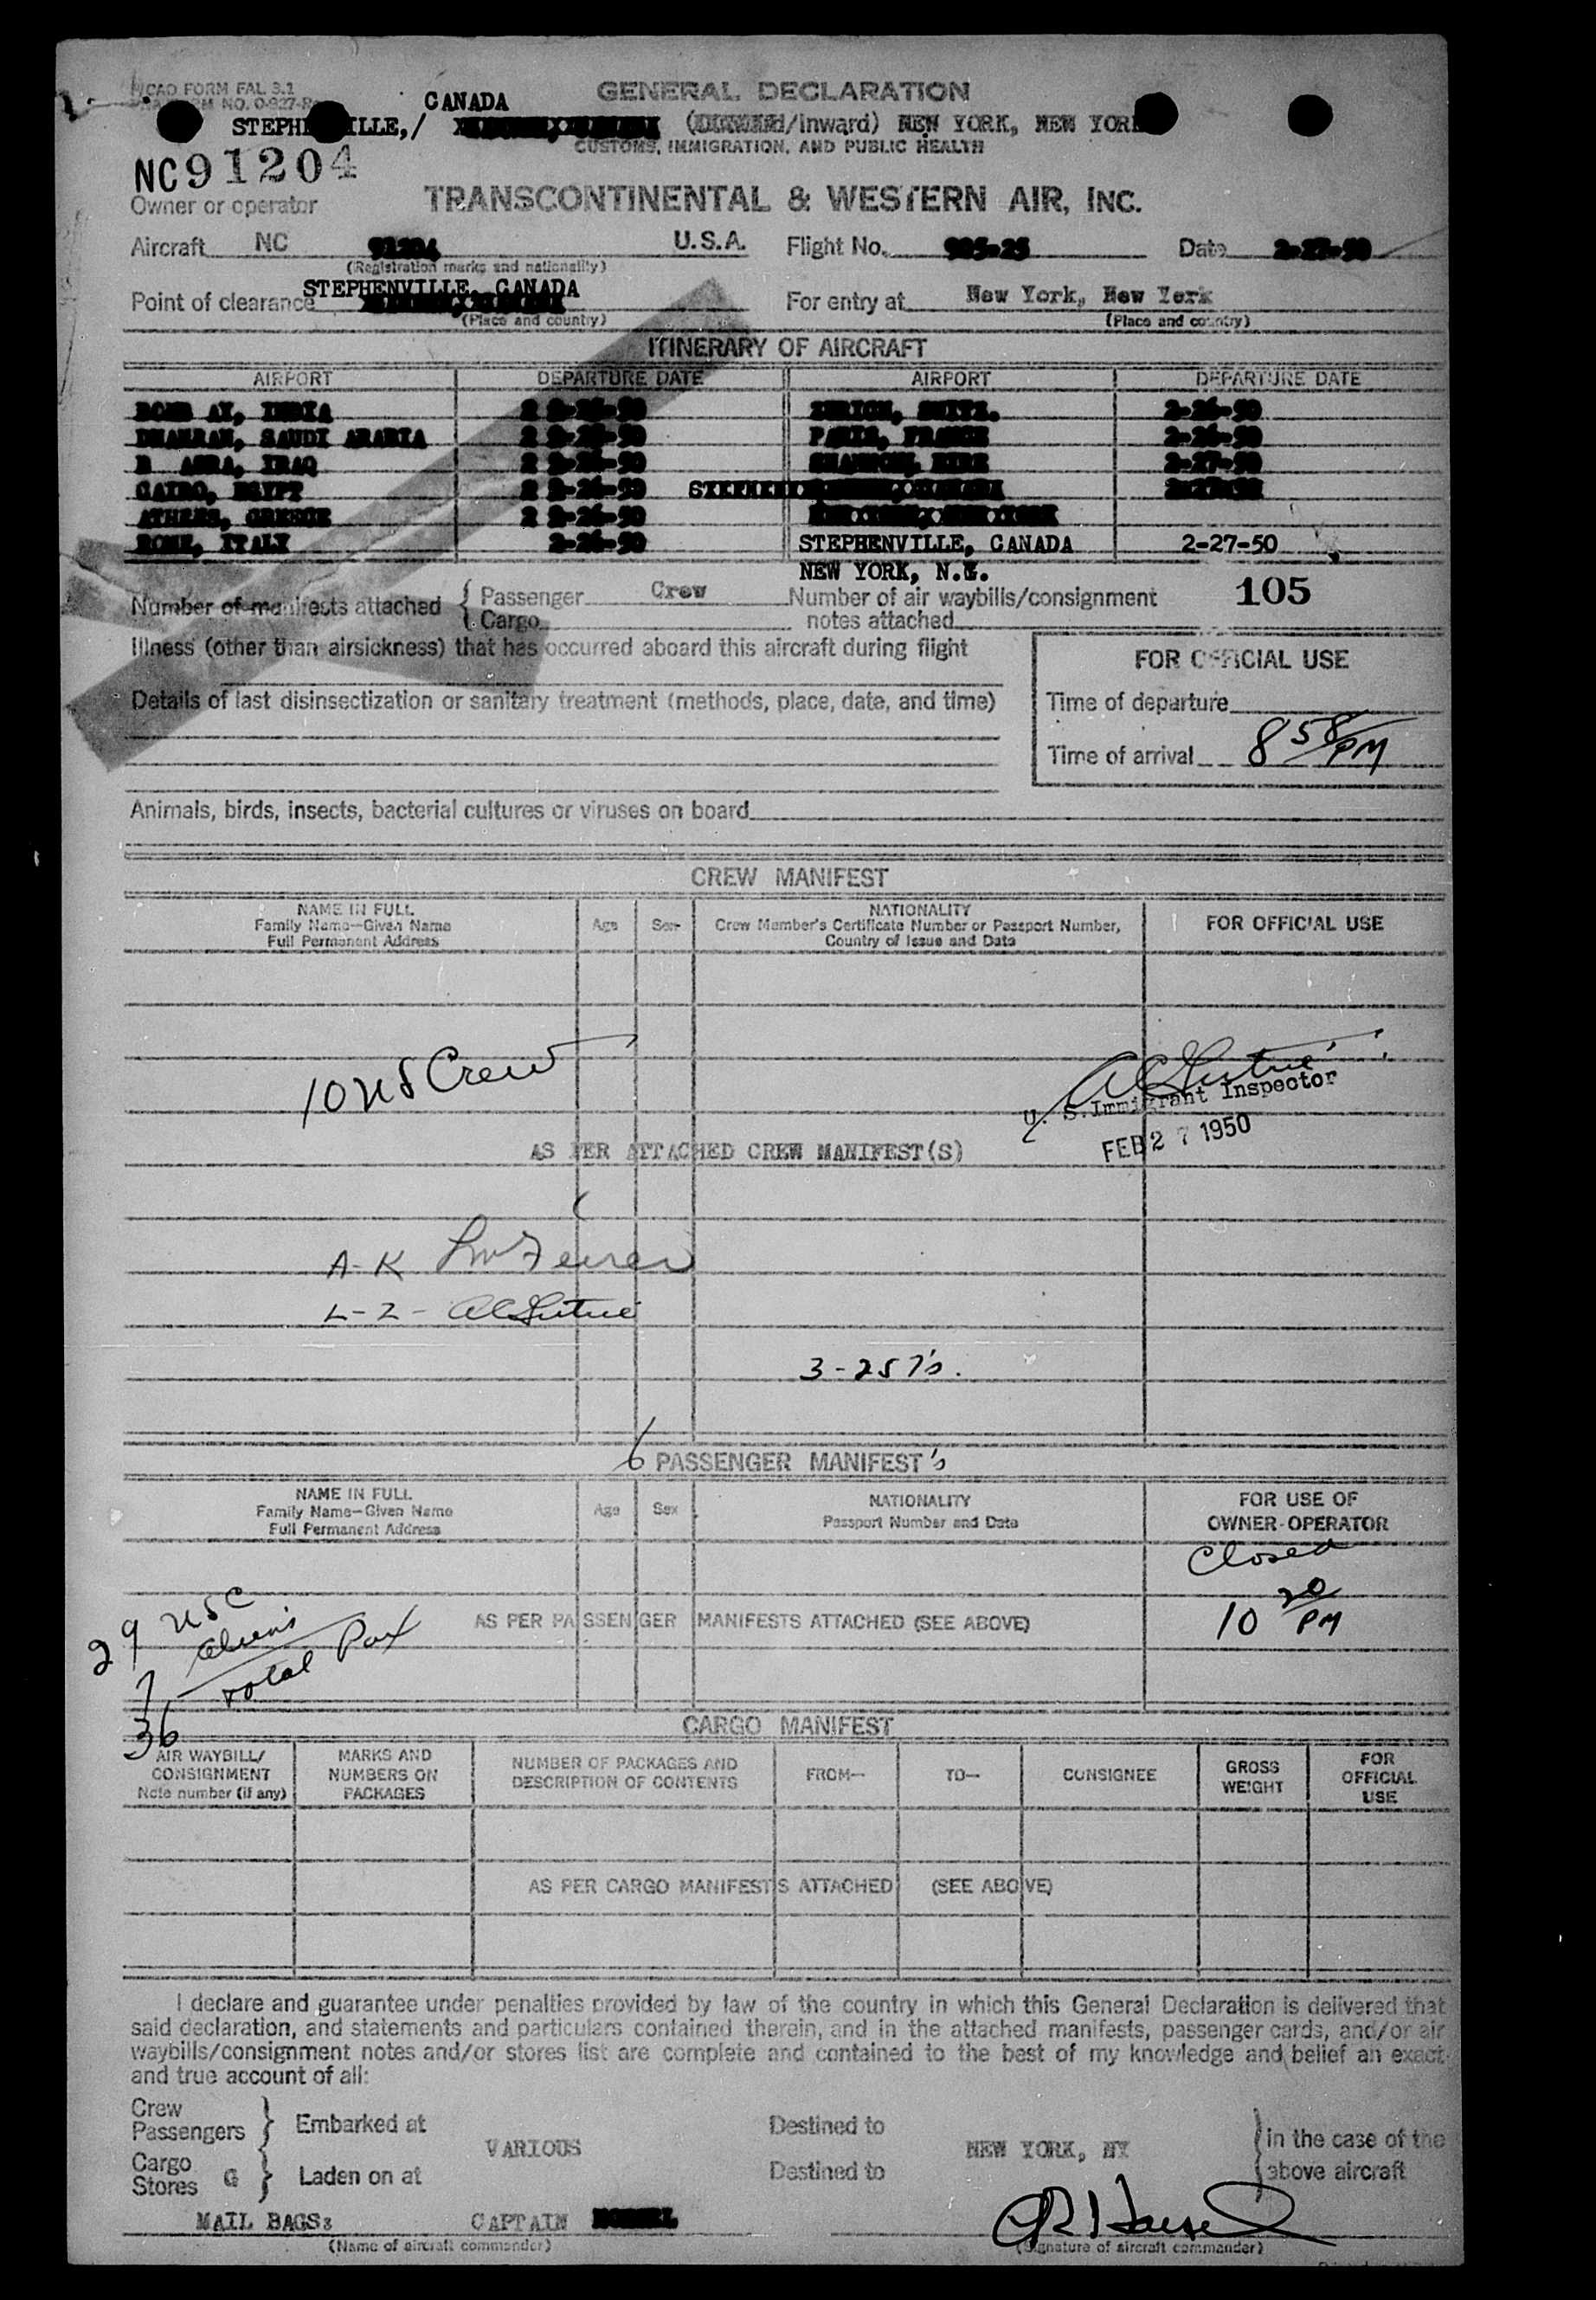 ICAO FORM FAL 3.1
GENERAL DECLARATION
CANADA
STEPHENVILLE,/ (/Inward) NEW YORK, NEW YORK
CUSTOMS, IMMIGRATION, AND PUBLIC HEALTH
NC91204
Owner or operator TRANSCONTINENTAL & WESTERN AIR, INC.
Aircraft NC 91204 U.S.A. Flight No. 925-25 Date 2-27-50
(Registration marks and nationality)
STEPHENVILLE, CANADA
Point of clearance For entry at New York, New York
(Place and country) (Place and country)
ITINERARY OF AIRCRAFT
AIRPORT DEPARTURE DATE AIRPORT DEPARTURE DATE
BOMB AY, INDIA 2 2-26-50 ZURICH, SWITZ. 2-26-50
DHAHRAN, SAUDI ARABIA 2 2-26-50 PARIS, FRANCE 2-26-50
B ASRA, IRAQ 2 2-26-50 SHANNON, EIRE 2-27-50
CAIRO, EGYPT 2 2-26-50
ATHENS, GREECE 2 2-26-50
ROME, ITALY 2-26-50 STEPHENVILLE, CANADA 2-27-50
NEW YORK, N.Y.
Number of manifests attached { Passenger Crew Number of air waybills/consignment 105
Cargo notes attached
Illness (other than airsickness) that has occurred aboard this aircraft during flight
FOR OFFICIAL USE
Details of last disinsectization or sanitary treatment (methods, place, date, and time)
Time of departure
Time of arrival 8 58 PM
Animals, birds, insects, bacterial cultures or viruses on board
CREW MANIFEST
NAME IN FULL
Family Name—Given Name
Full Permanent Address
Age Sex
NATIONALITY
Crew Member's Certificate Number or Passport Number,
Country of Issue and Date
FOR OFFICIAL USE
10 US Crew
U. S. Immigrant Inspector
FEB 27 1950
AS PER ATTACHED CREW MANIFEST(S)
A-K
L-Z -
3-257's.
6 PASSENGER MANIFEST's
NAME IN FULL
Family Name—Given Name
Full Permanent Address
Age Sex
NATIONALITY
Passport Number and Date
FOR USE OF
OWNER-OPERATOR
Closed
10 20 PM
29 USC
7 Aliens
36 Total Pax
AS PER PASSENGER MANIFESTS ATTACHED (SEE ABOVE)
CARGO MANIFEST
AIR WAYBILL/
CONSIGNMENT
Note number (if any)
MARKS AND
NUMBERS ON
PACKAGES
NUMBER OF PACKAGES AND
DESCRIPTION OF CONTENTS
FROM— TO— CONSIGNEE
GROSS
WEIGHT
FOR
OFFICIAL
USE
AS PER CARGO MANIFESTS ATTACHED (SEE ABOVE)
I declare and guarantee under penalties provided by law of the country in which this General Declaration is delivered that
said declaration, and statements and particulars contained therein, and in the attached manifests, passenger cards, and/or air
waybills/consignment notes and/or stores list are complete and contained to the best of my knowledge and belief an exact
and true account of all:
Crew
Passengers } Embarked at Destined to
VARIOUS NEW YORK, NY
In the case of the
above aircraft
Cargo
Stores G } Laden on at Destined to
MAIL BAGS: CAPTAIN
(Name of aircraft commander) (Signature of aircraft commander)